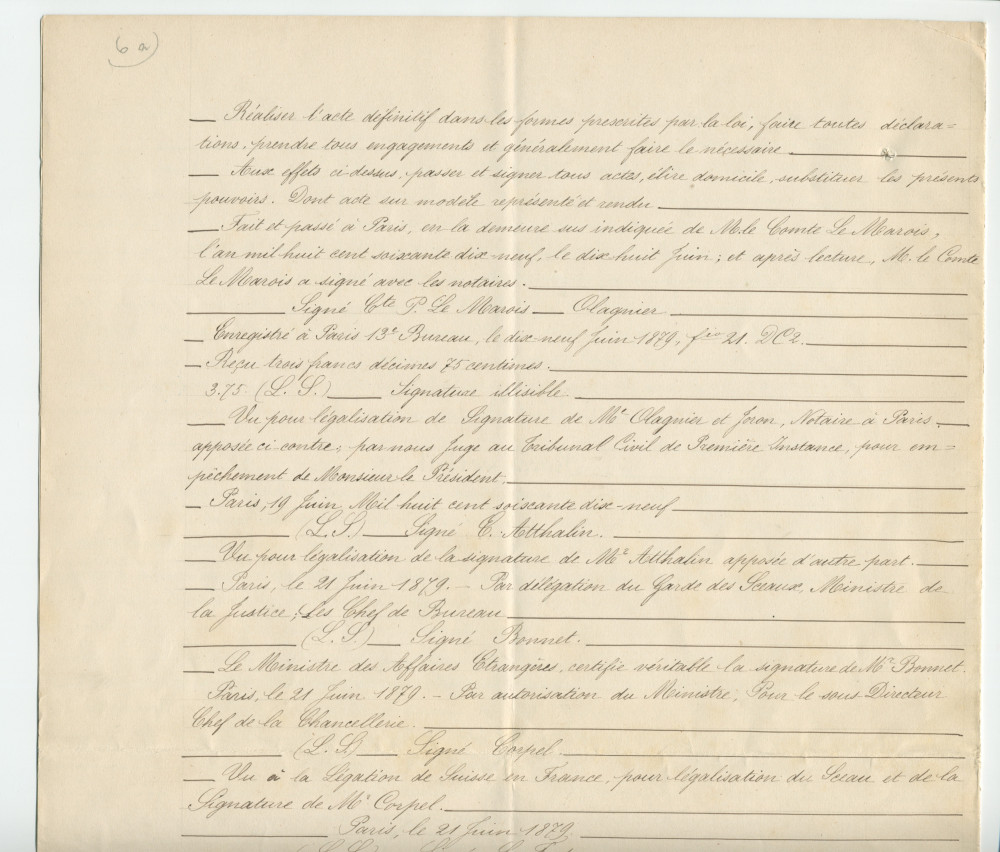 6 a)
Réaliser l'acte définitif dans les formes prescrites par la loi, faire toutes déclara=
tions, prendre tous engagements et généralement faire le nécessaire
Aux effets ci-dessus, passer et signer tous actes, élire domicile, substituer les présents
pouvoirs. Dont acte sur modèle représenté et rendu
Fait et passé à Paris, en la demeure sus indiquée de M. le Comte Le Marois,
l'an mil huit cent soixante dix-neuf, le dix huit Juin; et après lecture, M. le Comte
Le Marois a signé avec les notaires.
Signé Cte P. Le Marois — Olagnier
Enregistré à Paris 13e Bureau, le dix-neuf Juin 1879, fio 21. DC2.
Reçu trois francs décimes 75 centimes.
3.75 (L. S.) — Signature illisible.
Vu pour légalisation de Signature de Me Olagnier et Joron, Notaire à Paris,
apposée ci-contre, par nous Juge au Tribunal Civil de Première Instance, pour em=
pêchement de Monsieur le Président.
Paris, 19 Juin Mil huit cent soixante dix-neuf
(L. S.) — Signé Atthalin.
Vu pour légalisation de la signature de Mr Atthalin apposée d'autre part.
Paris, le 21 Juin 1879. — Par délégation du Garde des Sceaux, Ministre de
la Justice, Les Chef de Bureau
(L. S.) — Signé Bonnet.
Le Ministre des Affaires Etrangères, certifie véritable la signature de Mr Bonnet.
Paris, le 21 Juin 1879. — Par autorisation du Ministre, Pour le sous Directeur
Chef de la Chancellerie.
(L. S.) — Signé Corpel.
Vu à la Légation de Suisse en France, pour légalisation du Sceau et de la
Signature de Mr Corpel.
Paris, le 21 Juin 1879